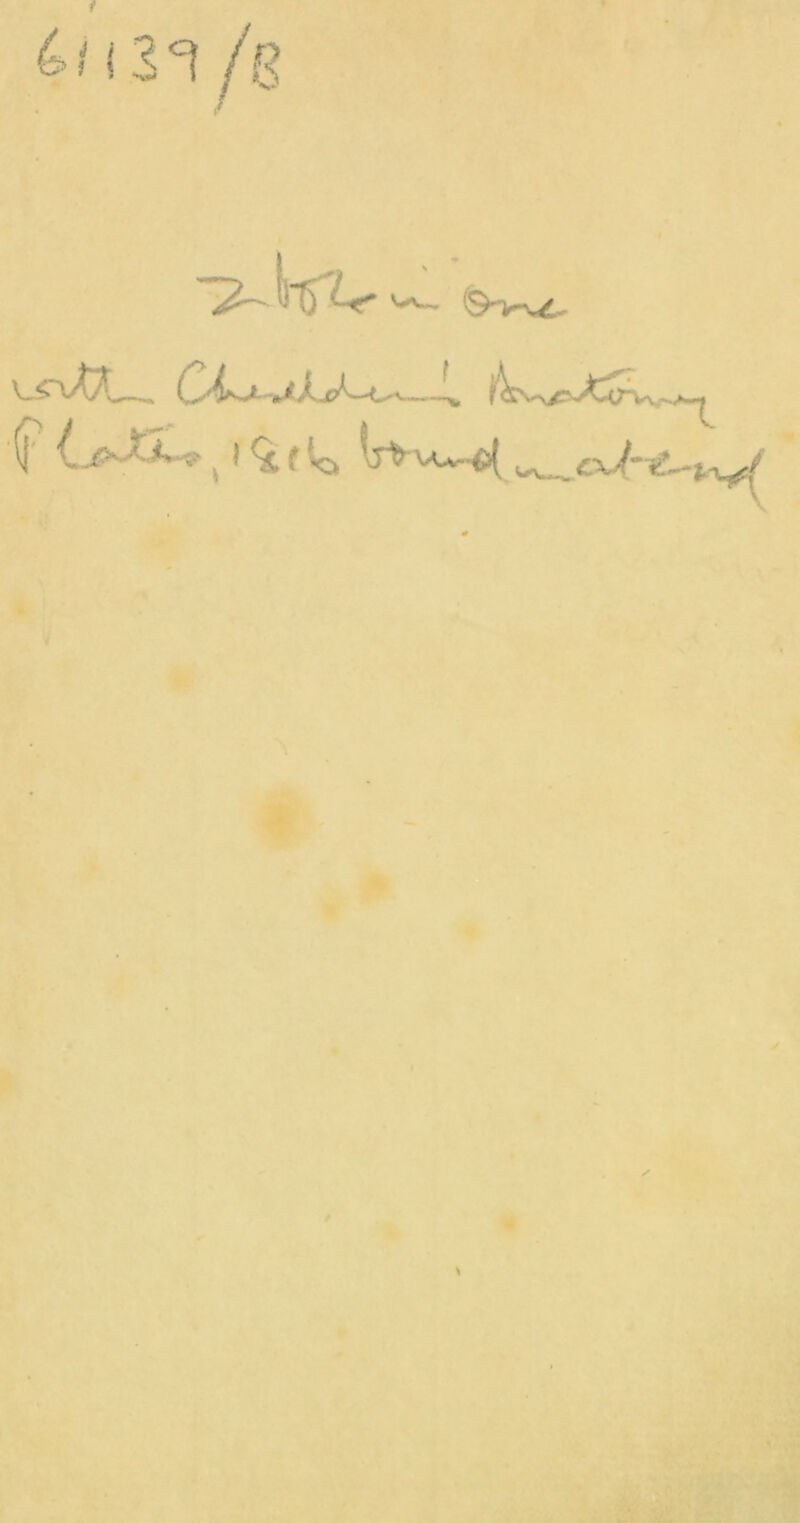 61139/B
2 vols in one
with Cheselden's Anatomy
Plates, 1816 bound in at end